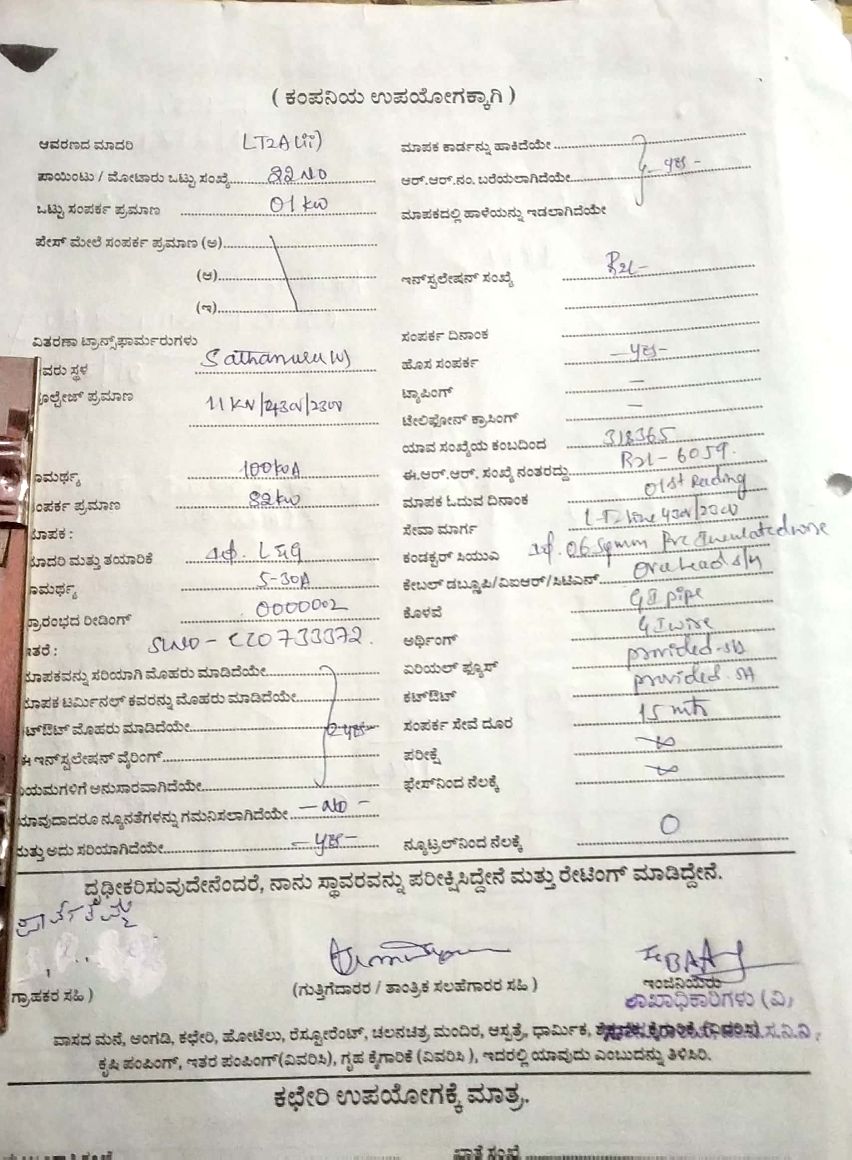 ( ಕಂಪನಿಯ ಉಪಯೋಗಕ್ಕಾಗಿ )
ಆವರಣದ ಮಾದರಿ LT2A(ii)
ಪಾಯಿಂಟು / ಮೋಟಾರು ಒಟ್ಟು ಸಂಖ್ಯೆ 22 No
ಒಟ್ಟು ಸಂಪರ್ಕ ಪ್ರಮಾಣ 01 kw
ಪೇಸ್ ಮೇಲೆ ಸಂಪರ್ಕ ಪ್ರಮಾಣ (ಅ)
(ಆ)
(ಇ)
ವಿತರಣಾ ಟ್ರಾನ್ಸ್‌ಫಾರ್ಮರುಗಳು
ವರು ಸ್ಥಳ Sathanuru(W)
ವೋಲ್ಟೇಜ್ ಪ್ರಮಾಣ 11KV/430V/230V
ಾಮರ್ಥ್ಯ 100KVA
ಂಪರ್ಕ ಪ್ರಮಾಣ 82kw
ಮಾಪಕ :
ಮಾದರಿ ಮತ್ತು ತಯಾರಿಕೆ 1ph. L&G
ಾಮರ್ಥ್ಯ 5-30A
ಪ್ರಾರಂಭದ ರೀಡಿಂಗ್ 0000002
ಇತರೆ : SLNO - CZ0733372.
ಮಾಪಕವನ್ನು ಸರಿಯಾಗಿ ಮೊಹರು ಮಾಡಿದೆಯೇ
ಮಾಪಕ ಟರ್ಮಿನಲ್ ಕವರನ್ನು ಮೊಹರು ಮಾಡಿದೆಯೇ
ಕಟ್‌ಔಟ್ ಮೊಹರು ಮಾಡಿದೆಯೇ yes
ಈ ಇನ್‌ಸ್ಟಲೇಷನ್ ವೈರಿಂಗ್
ನಿಯಮಗಳಿಗೆ ಅನುಸಾರವಾಗಿದೆಯೇ
ಯಾವುದಾದರೂ ನ್ಯೂನತೆಗಳನ್ನು ಗಮನಿಸಲಾಗಿದೆಯೇ - No -
ಮತ್ತು ಅದು ಸರಿಯಾಗಿದೆಯೇ - yes -
ಮಾಪಕ ಕಾರ್ಡನ್ನು ಹಾಕಿದೆಯೇ
ಆರ್.ಆರ್.ನಂ. ಬರೆಯಲಾಗಿದೆಯೇ - yes -
ಮಾಪಕದಲ್ಲಿ ಹಾಳೆಯನ್ನು ಇಡಲಾಗಿದೆಯೇ
ಇನ್‌ಸ್ಟಲೇಷನ್ ಸಂಖ್ಯೆ
ಸಂಪರ್ಕ ದಿನಾಂಕ
ಹೊಸ ಸಂಪರ್ಕ - yes -
ಟ್ಯಾಪಿಂಗ್ -
ಟೇಲಿಫೋನ್ ಕ್ರಾಸಿಂಗ್ -
ಯಾವ ಸಂಖ್ಯೆಯ ಕಂಬದಿಂದ 318365
ಈ.ಆರ್.ಆರ್. ಸಂಖ್ಯೆ ನಂತರದ್ದು
ಮಾಪಕ ಓದುವ ದಿನಾಂಕ 01st Reading
ಸೇವಾ ಮಾರ್ಗ L-T-line 430V/230V
ಕಂಡಕ್ಟರ್ ಸಿಯುಎ 1ph. 06 Sqmm Pvc Insulated wire
ಕೇಬಲ್ ಡಬ್ಲೂಪಿ/ವಿಐಆರ್/ಸಿಟಿಎಸ್ Overhead
ಕೊಳವೆ GI pipe
ಅರ್ಥಿಂಗ್ GI wire
ಏರಿಯಲ್ ಫ್ಯೂಸ್ provided
ಕಟ್‌ಔಟ್ provided
ಸಂಪರ್ಕ ಸೇವೆ ದೂರ 15 mts
ಪರೀಕ್ಷೆ ∞
ಫೇಸ್‌ನಿಂದ ನೆಲಕ್ಕೆ ∞
ನ್ಯೂಟ್ರಲ್‌ನಿಂದ ನೆಲಕ್ಕೆ 0
ದೃಢೀಕರಿಸುವುದೇನೆಂದರೆ, ನಾನು ಸ್ಥಾವರವನ್ನು ಪರೀಕ್ಷಿಸಿದ್ದೇನೆ ಮತ್ತು ರೇಟಿಂಗ್ ಮಾಡಿದ್ದೇನೆ.
ಗ್ರಾಹಕರ ಸಹಿ ) (ಗುತ್ತಿಗೆದಾರರ / ತಾಂತ್ರಿಕ ಸಲಹೆಗಾರರ ಸಹಿ ) ಇಂಜಿನಿಯರು
ಶಾಖಾಧಿಕಾರಿಗಳು (ವಿ)
ವಾಸದ ಮನೆ, ಅಂಗಡಿ, ಕಛೇರಿ, ಹೋಟೆಲು, ರೆಸ್ಟೋರೆಂಟ್, ಚಲನಚಿತ್ರ ಮಂದಿರ, ಆಸ್ಪತ್ರೆ, ಧಾರ್ಮಿಕ, ಕೈಗಾರಿಕೆ (ವಿವರಿಸಿ)
ಕೃಷಿ ಪಂಪಿಂಗ್, ಇತರ ಪಂಪಿಂಗ್(ವಿವರಿಸಿ), ಗೃಹ ಕೈಗಾರಿಕೆ (ವಿವರಿಸಿ ), ಇದರಲ್ಲಿ ಯಾವುದು ಎಂಬುದನ್ನು ತಿಳಿಸಿರಿ.
ಕಛೇರಿ ಉಪಯೋಗಕ್ಕೆ ಮಾತ್ರ.